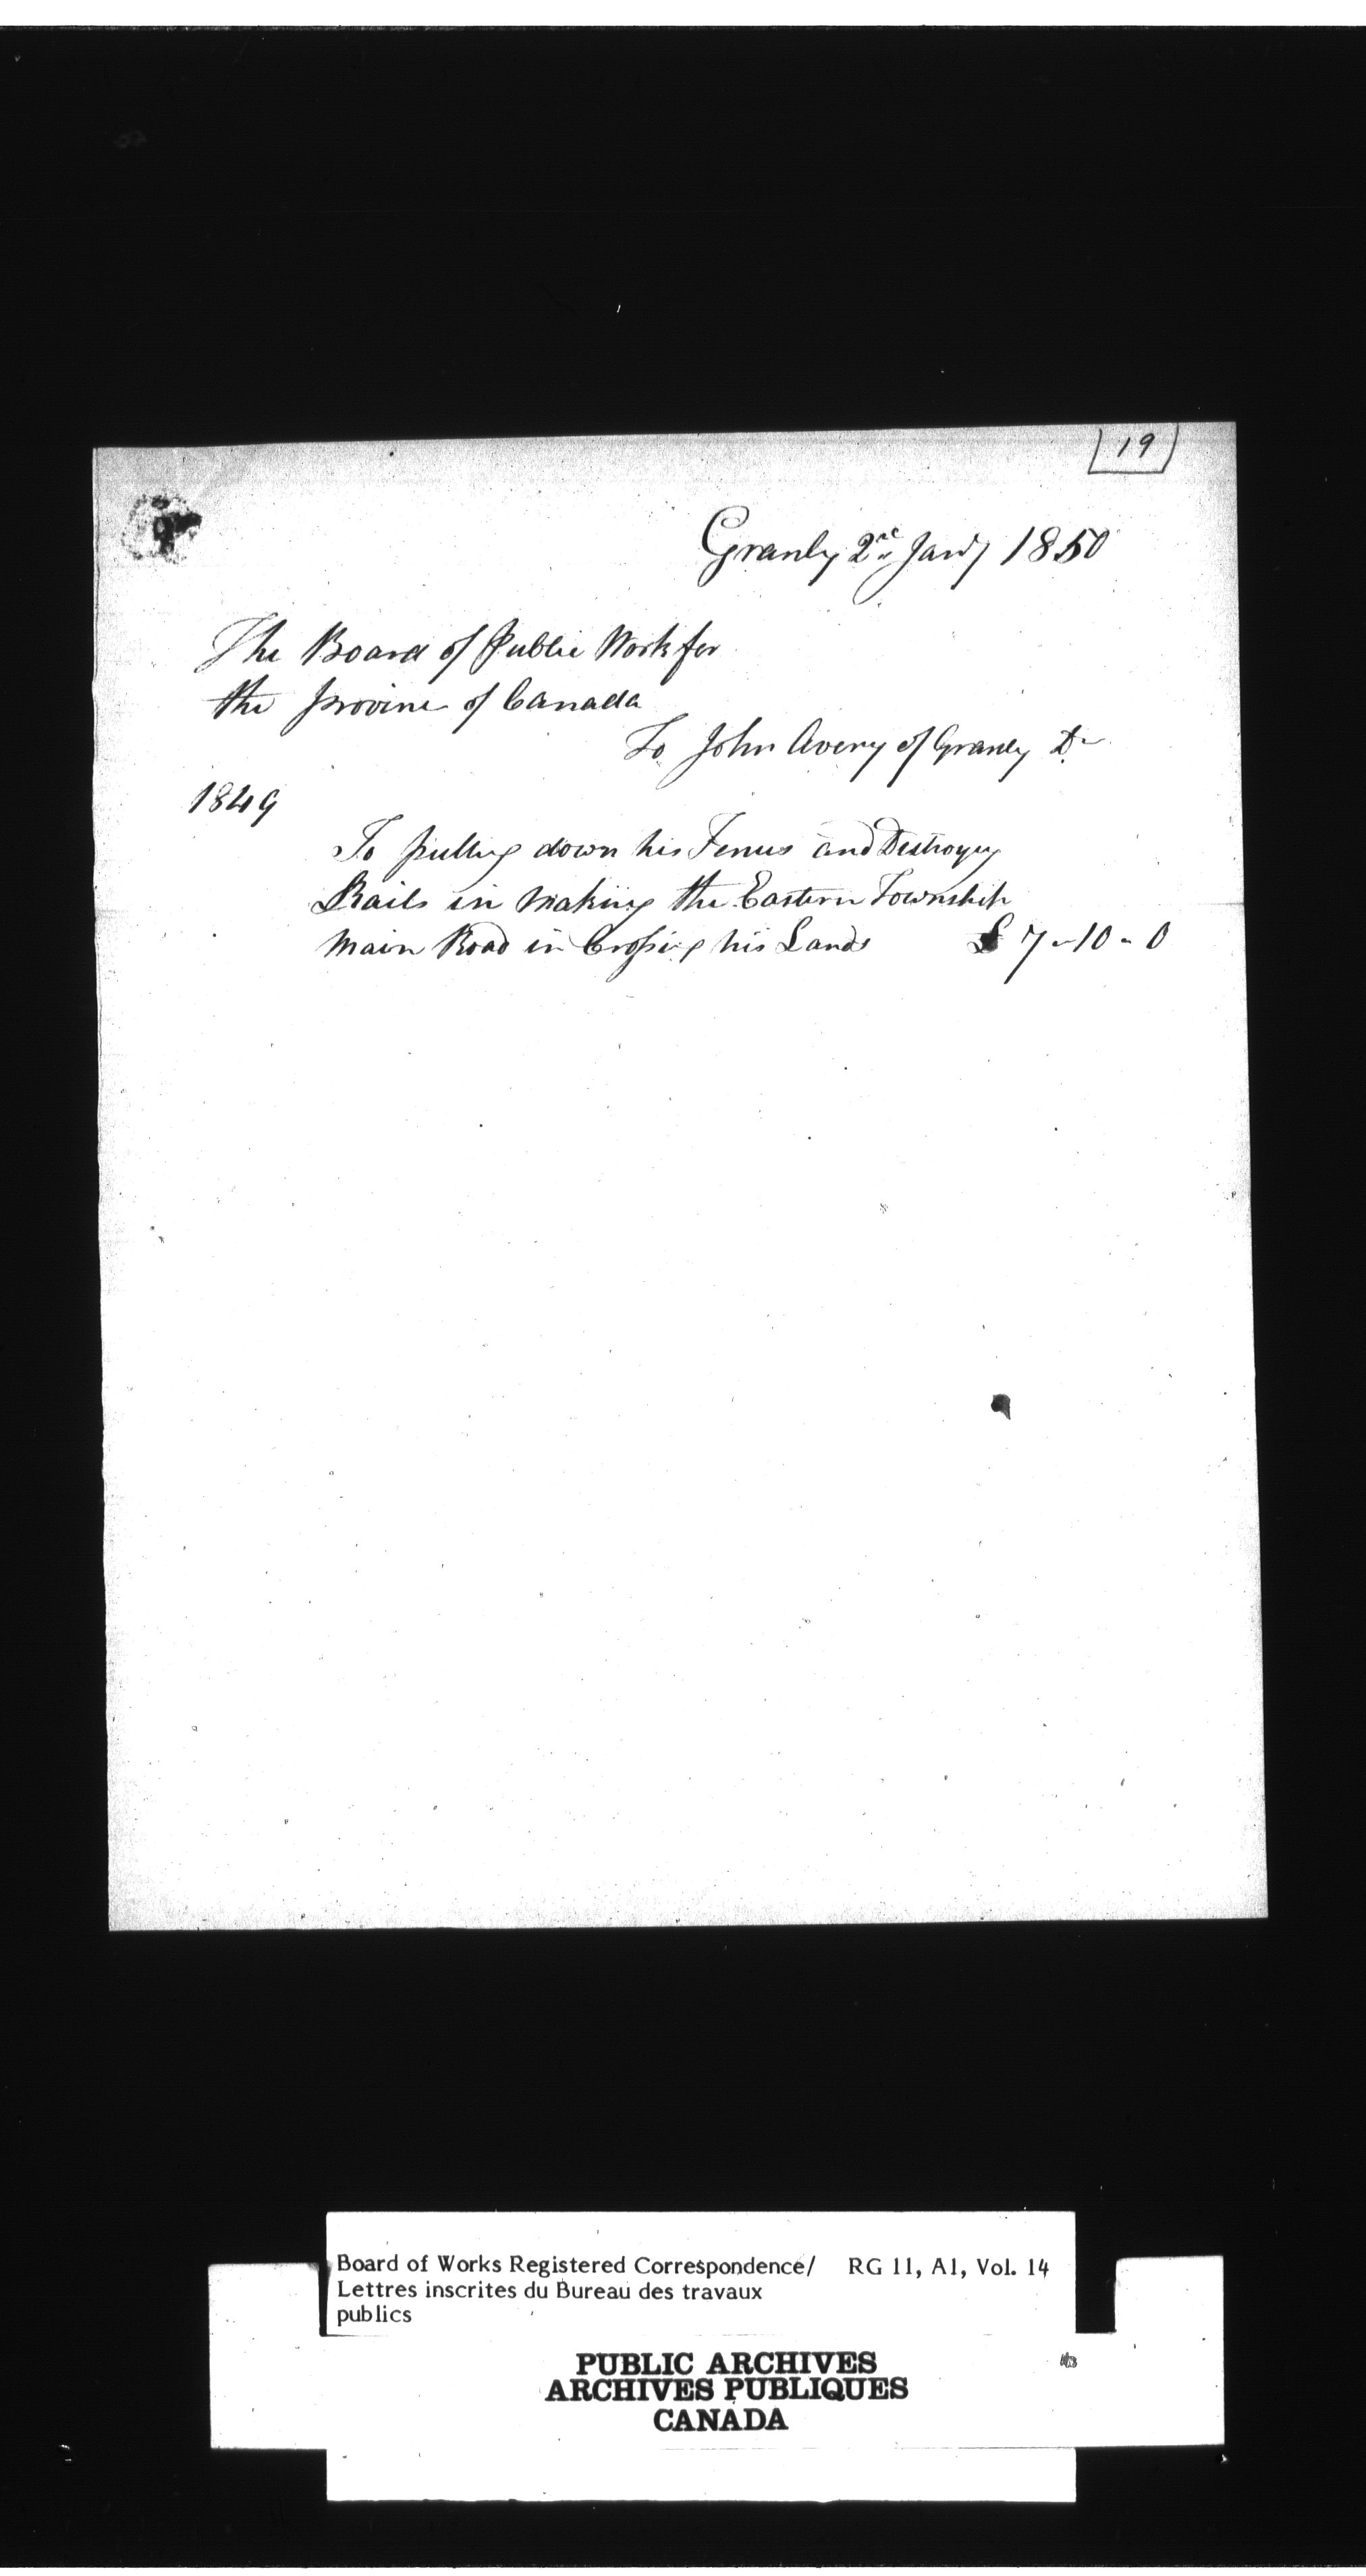 19
Granby 2nd Jany 1850
The Board of Public Work for
the province of Canada
To John Avery of Granby Dr
1849
To pulling down his Fences and Destroying
Rails in making the Eastern Township
main Road in Crossing his Lands £ 7-10-0
Board of Works Registered Correspondence/ RG 11, A1, Vol. 14
Lettres inscrites du Bureau des travaux
publics
PUBLIC ARCHIVES
ARCHIVES PUBLIQUES
CANADA